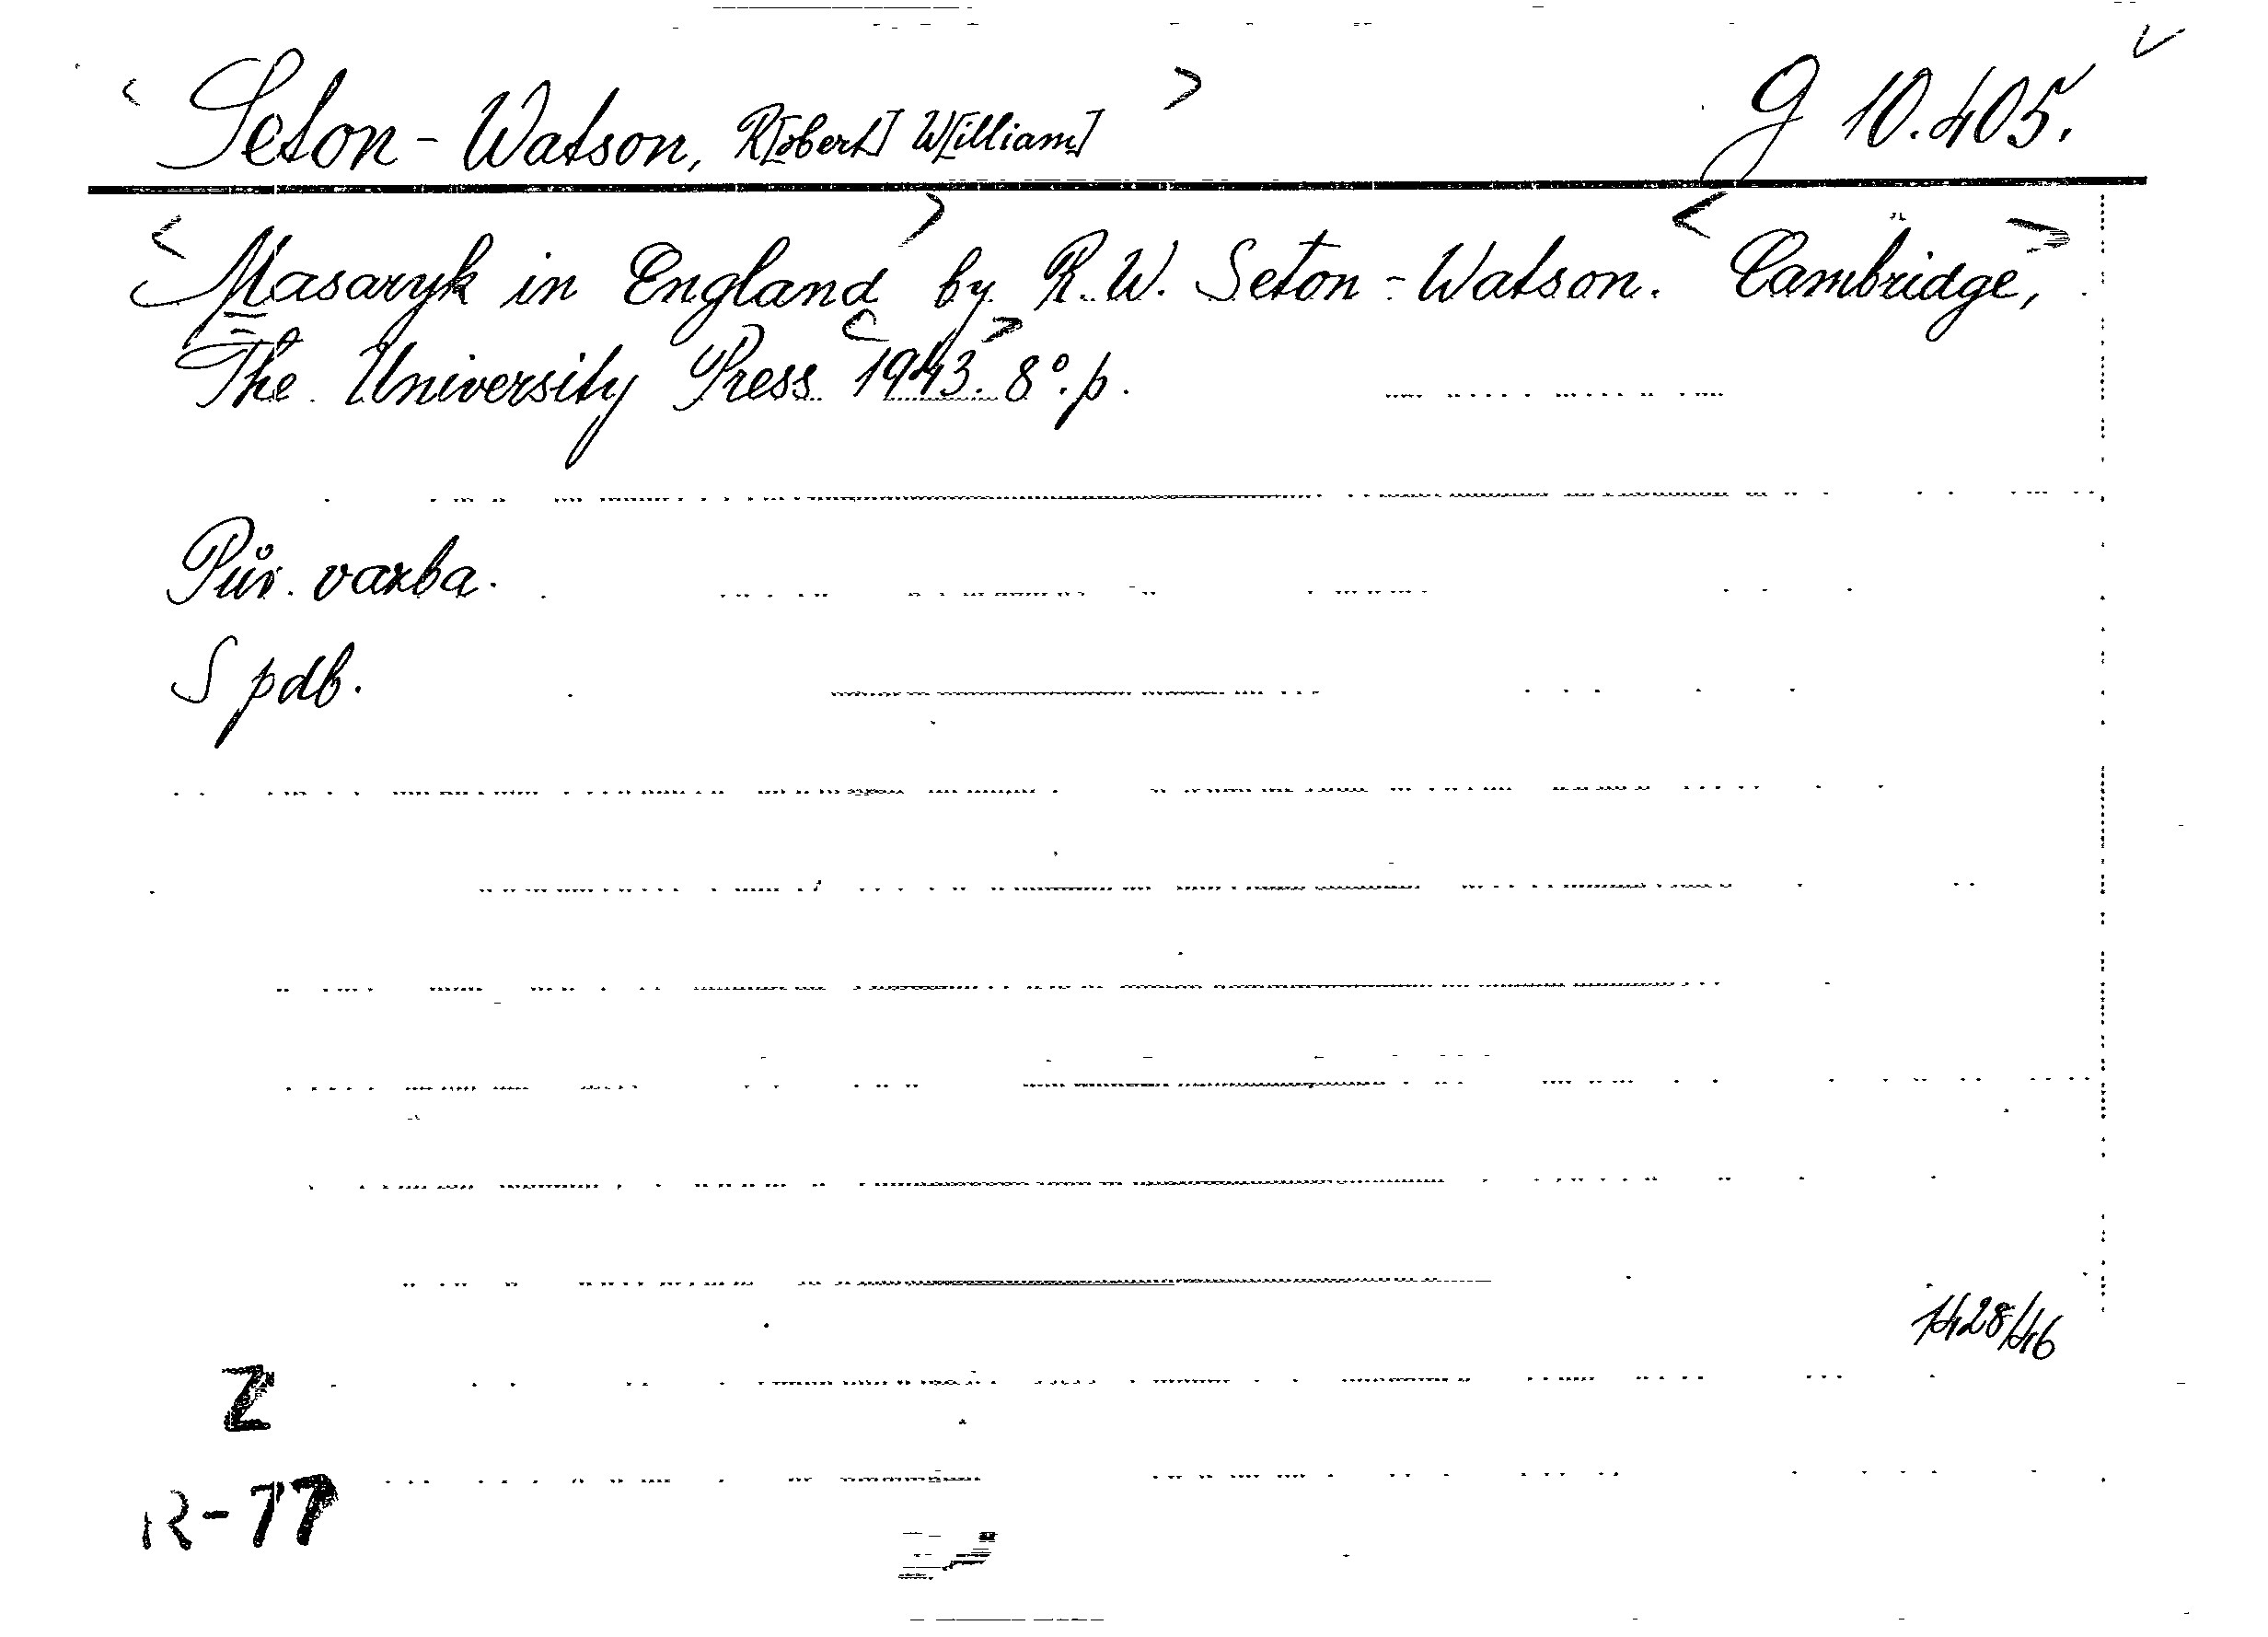 <Seton-Watson, R[obert] W[illiam]> g 10.405.
<Masaryk in England> by R. W. Seton-Watson. <Cambridge,>
The University Press <1943.> 8°. p.
Pův. vazba.
S pdb.
1428/46
Z
R-77